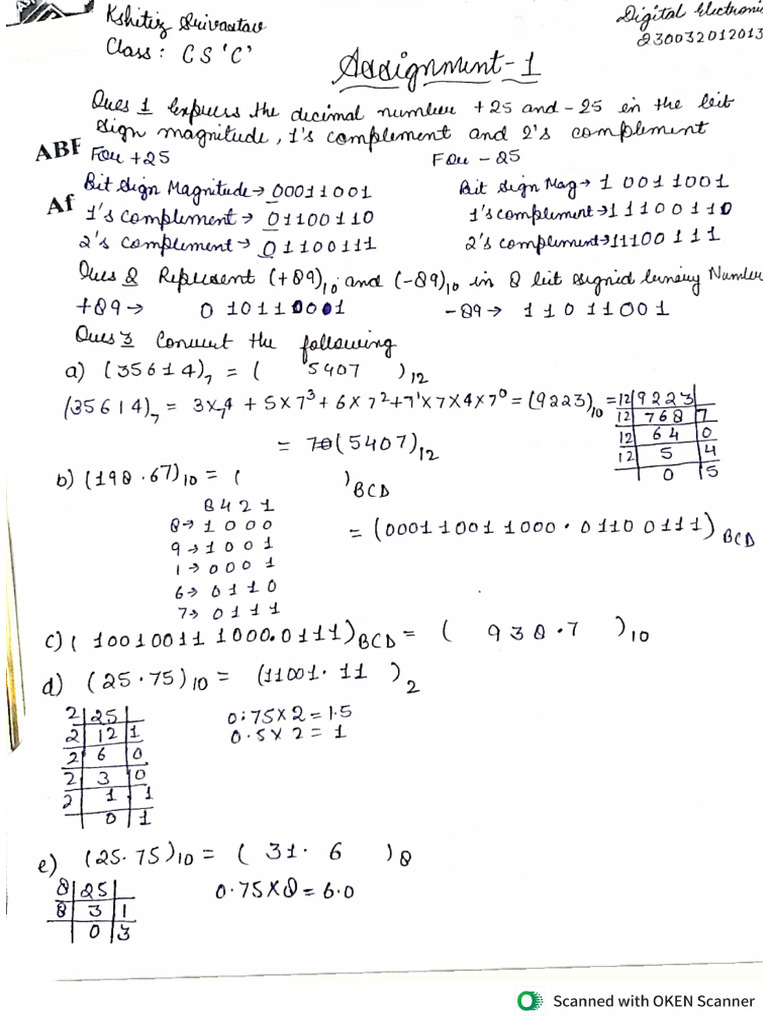 Kshitiz Srivastav
Digital Electronic
230032012013
Class: CS 'C'
Assignment-1
Ques 1 Express the decimal number +25 and -25 in the bit
sign magnitude, 1's complement and 2's complement
ABF
For +25
For -25
Bit Sign Magnitude → 00011001
Bit Sign Mag → 1 0011001
Af
1's complement → 01100110
1's complement → 11100110
2's complement → 01100111
2's complement → 11100111
Ques 2 Represent (+89)10 and (-89)10 in 8 bit signed binary Number
+89 → 0 10110001
-89 → 11011001
Ques 3 Convert the following
a) (35614)7 = ( 5407 )12
(35614)7 = 3×7^4 + 5×7^3 + 6×7^2 + 7^1×7×4×7^0 = (9223)10 =
12 | 9223
12 | 768 | 7
12 | 64 | 0
12 | 5 | 4
0 | 5
= (5407)12
b) (198.67)10 = ( )BCD
8 4 2 1
8 → 1 0 0 0
= (0001 1001 1000 . 0110 0111)BCD
9 → 1 0 0 1
1 → 0 0 0 1
6 → 0 1 1 0
7 → 0 1 1 1
c) ( 10010011 1000.0111)BCD = ( 938.7 )10
d) (25.75)10 = (11001.11 )2
2 | 25
2 | 12 | 1
2 | 6 | 0
2 | 3 | 0
2 | 1 | 1
0 | 1
0.75×2 = 1.5
0.5×2 = 1
e) (25.75)10 = ( 31.6 )8
8 | 25
8 | 3 | 1
0 | 3
0.75×8 = 6.0
Scanned with OKEN Scanner